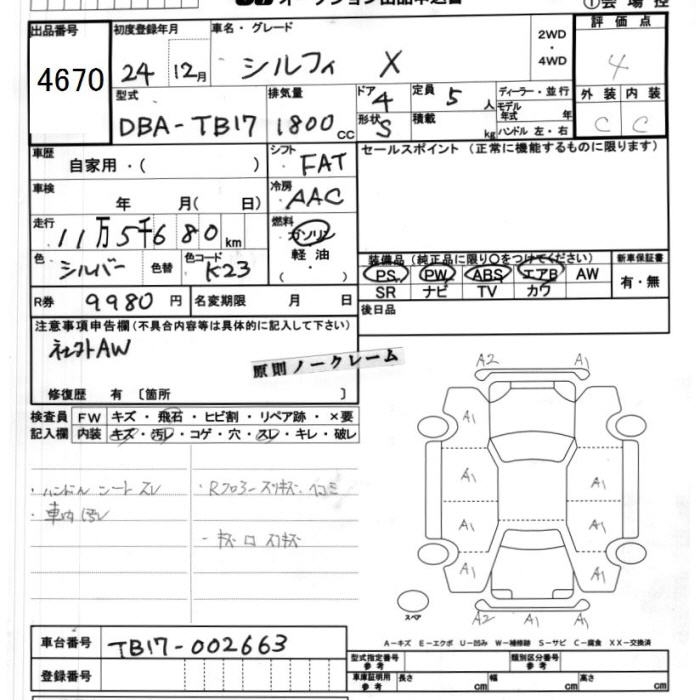 オークション出品申込書 ①会場控
出品番号 4670
初度登録年月 24 12月
車名・グレード シルフィ X
2WD・4WD
評価点 4
外装 C 内装 C
型式 DBA-TB17
排気量 1800CC
ドア 4 形状 S
定員 5人
積載 kg
ディーラー・並行
モデル年式 年
ハンドル 左・右
車歴 自家用・( )
シフト FAT
セールスポイント(正常に機能するものに限ります)
車検 年 月( 日)
冷房 AAC
走行 11万5千680km
燃料 ガソリン・軽油・
色 シルバー 色替 色コード K23
装備品(純正品に限り○をつけてください) 新車保証書
PS PW ABS エアB AW 有・無
SR ナビ TV カワ
R券 9980円 名変期限 月 日
後日品
注意事項申告欄(不具合内容等は具体的に記入して下さい)
社外AW
原則ノークレーム
修復歴 有〔箇所 〕
検査員記入欄
FW キズ・飛石・ヒビ割・リペア跡・×要
内装 キズ・汚レ・コゲ・穴・スレ・キレ・破レ
・ハンドル シート スレ
・車内 汚レ
・Rフロアー スリキズ、ヘコミ
・キズ スリキズ
A2 A1
A1
A1 A1
A1 A1
A1 A1
A2 A1 A1
スペア
A-キズ E-エクボ U-凹み W-補修跡 S-サビ C-腐食 XX-交換済
車台番号 TB17-002663
登録番号
型式指定番号 参考 類別区分番号 参考
車庫証明用 参考 長さ cm 幅 cm 高さ cm